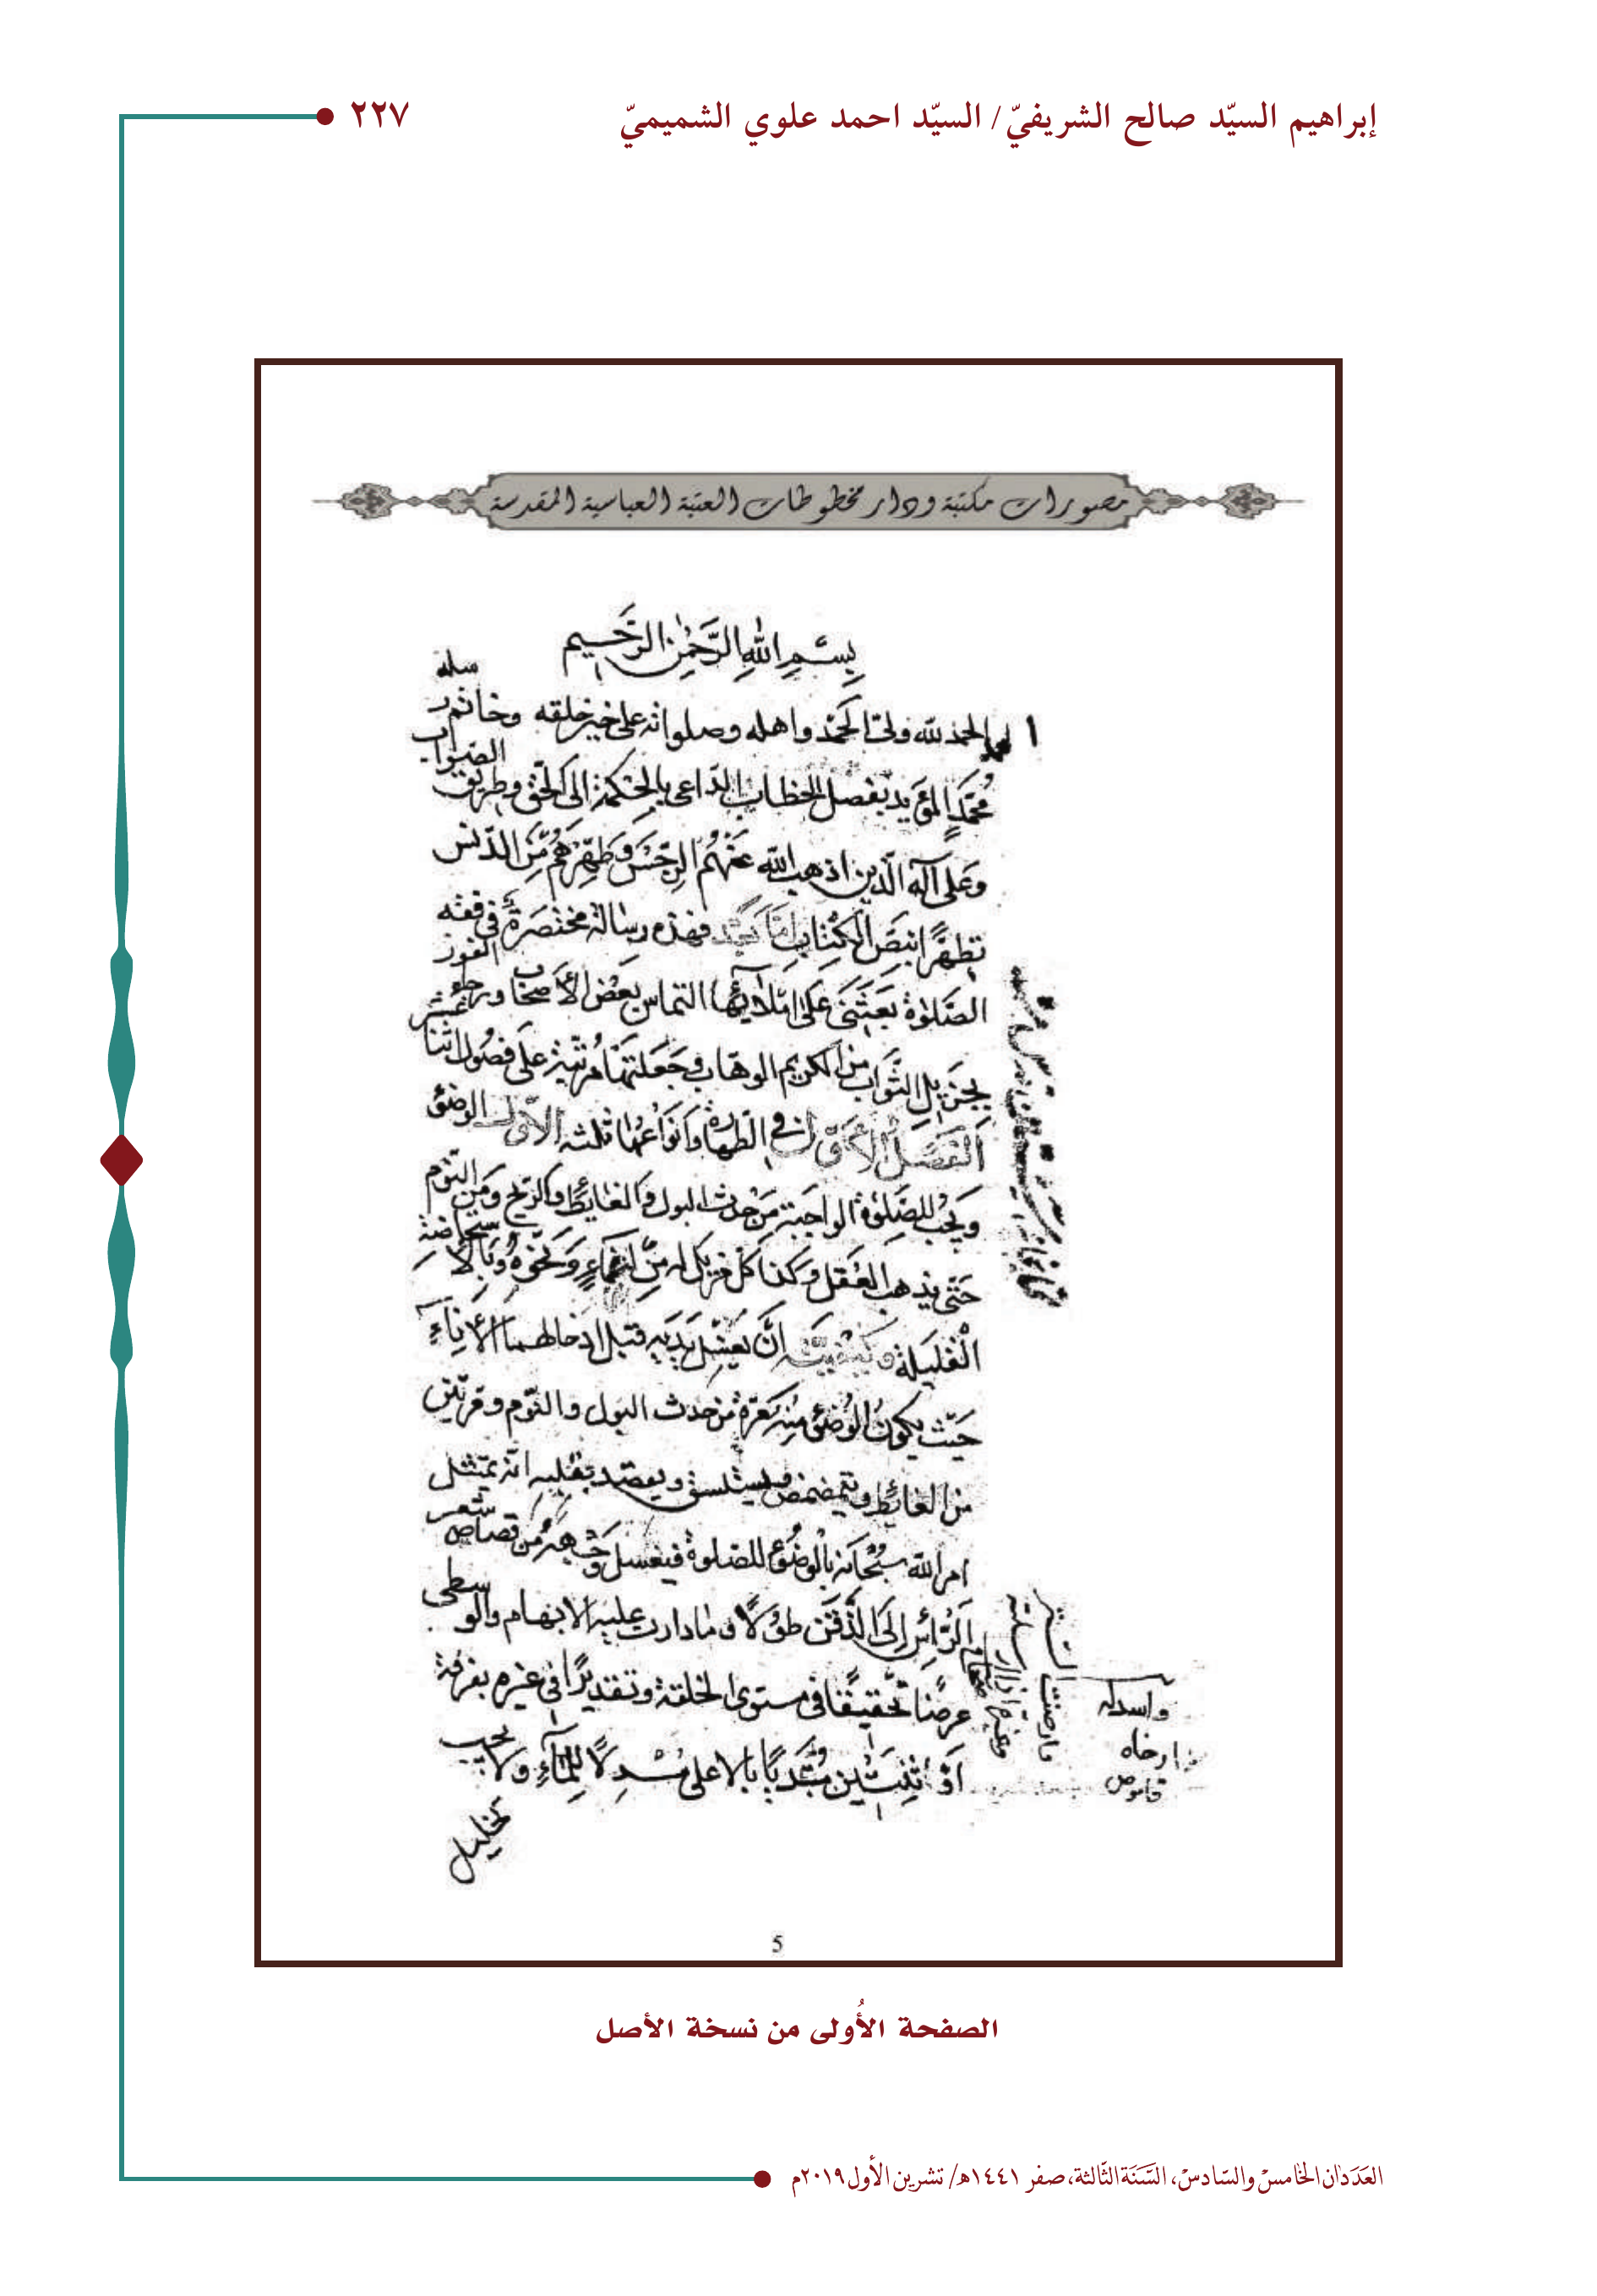 إبراهيم السيّد صالح الشريفيّ/ السيّد احمد علوي الشميميّ
٢٢٧
مصورات مكتبة ودار مخطوطات العتبة العباسية المقدسة
بِسْمِ اللهِ الرَّحْمٰنِ الرَّحِيمِ
الحمد لله ولیّ الحَمْد واهله وصلواته على خير خلقه وخاتم رسله
مُحَمَّدٍ المؤيد بفصل الخطاب الدّاعى بالحكمة الى الحقّ وطريق الصّواب
وعَلى آله الّذين اذهب الله عَنهُم الرّجْسَ وَطَهّرَهُم مِّنَ الدّنس
تطهيرًا بنصّ الكتاب امّا بَعْد فهذه رسالة مختصَرة فى فقه
الصَّلوٰة بَعَثَنى عَلى املائها التماس بَعْض الأصحاب ورجاء الفوز
بجَزيل الثّواب من الكريم الوهّاب وجَعَلتها مرتّبة على فصُول اثنا عشر
الفَصْل الأوّل فى الطّهارة وَأنواعُها ثلثه الأوّل الوضئ
وَيجبُ للصّلوٰة الواجبة مِنْ حدث البول وَالغائِط وَالرّيح وَمن النّوم
حَتّى يذهب العَقل وكذا كلّ مزيل له مِّن اغماءٍ وَنحْوهُ وَبالاستحاضة
الْقليلة وكيفيّته انّ يَغْسِل يَدَيه قبل ادخالهما الأناءَ
حَيْث يكون الوُضئ مِنه مَرّة من حدث البول والنّوم ومَرّتين
من الغائط ويتمضمض ويستنشق ويقصد بقلبه انّه يمتثل
امر الله سُبْحَانه بالْوضوُء للصلوة فيغسل وَجْهه من قصاص شعر
الرّأسِ الى الذَّقَن طوْلًا وما دارت عليه الابهام والوسطى
عرضًا تحْقيقًا فى مستوى الخلقة وتقديرًا فى غيره بغرفة
اوْ اثنتَين مُبْتَدِيًا بالاعلى مُسْدِلًا للِمآءِ ولا يجب
تخليل
واسدله
ارخاه
قاموس
5
الصفحة الأُولى من نسخة الأصل
العَدَدان الخامسْ والسّادسْ، السَّنَة الثّالثة، صفر ١٤٤١هـ/ تشرين الأول ٢٠١٩م